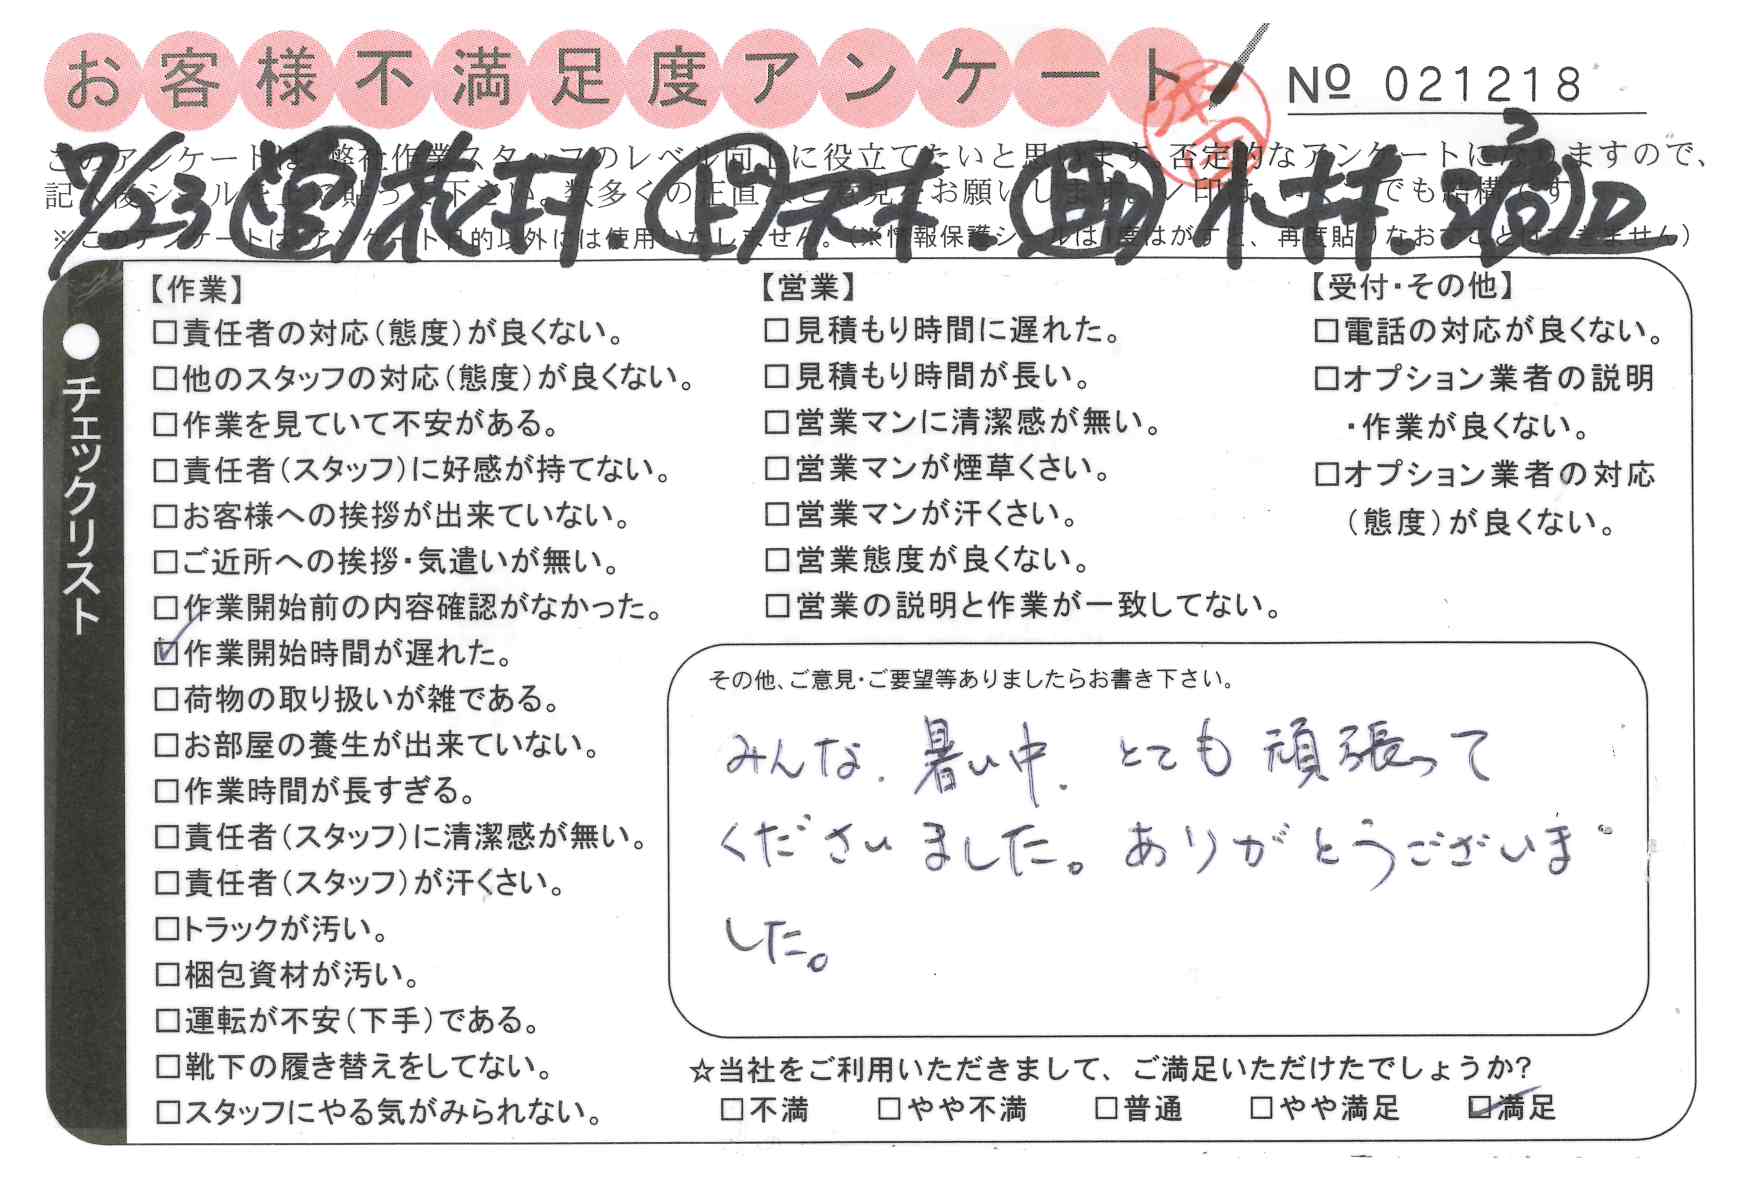 お客様不満足度アンケート
№ 021218
このアンケートは、弊社作業スタッフのレベル向上に役立てたいと思います。否定的なアンケートになりますので、
記入後シールを上に貼って下さい。数多くの正直なご意見をお願いします。レ印は、いくつでも結構です。
※このアンケートは、アンケート目的以外には使用いたしません。(※情報保護シールは1度はがすと、再度貼りなおすことはできません)
7/23 営 花村 木村
済
●チェックリスト
【作業】
□責任者の対応(態度)が良くない。
□他のスタッフの対応(態度)が良くない。
□作業を見ていて不安がある。
□責任者(スタッフ)に好感が持てない。
□お客様への挨拶が出来ていない。
□ご近所への挨拶・気遣いが無い。
□作業開始前の内容確認がなかった。
☑作業開始時間が遅れた。
□荷物の取り扱いが雑である。
□お部屋の養生が出来ていない。
□作業時間が長すぎる。
□責任者(スタッフ)に清潔感が無い。
□責任者(スタッフ)が汗くさい。
□トラックが汚い。
□梱包資材が汚い。
□運転が不安(下手)である。
□靴下の履き替えをしてない。
□スタッフにやる気がみられない。
【営業】
□見積もり時間に遅れた。
□見積もり時間が長い。
□営業マンに清潔感が無い。
□営業マンが煙草くさい。
□営業マンが汗くさい。
□営業態度が良くない。
□営業の説明と作業が一致してない。
【受付・その他】
□電話の対応が良くない。
□オプション業者の説明
・作業が良くない。
□オプション業者の対応
(態度)が良くない。
その他、ご意見・ご要望等ありましたらお書き下さい。
みんな、暑い中、とても頑張って
くださいました。ありがとうございま
した。
☆当社をご利用いただきまして、ご満足いただけたでしょうか?
□不満 □やや不満 □普通 □やや満足 ☑満足